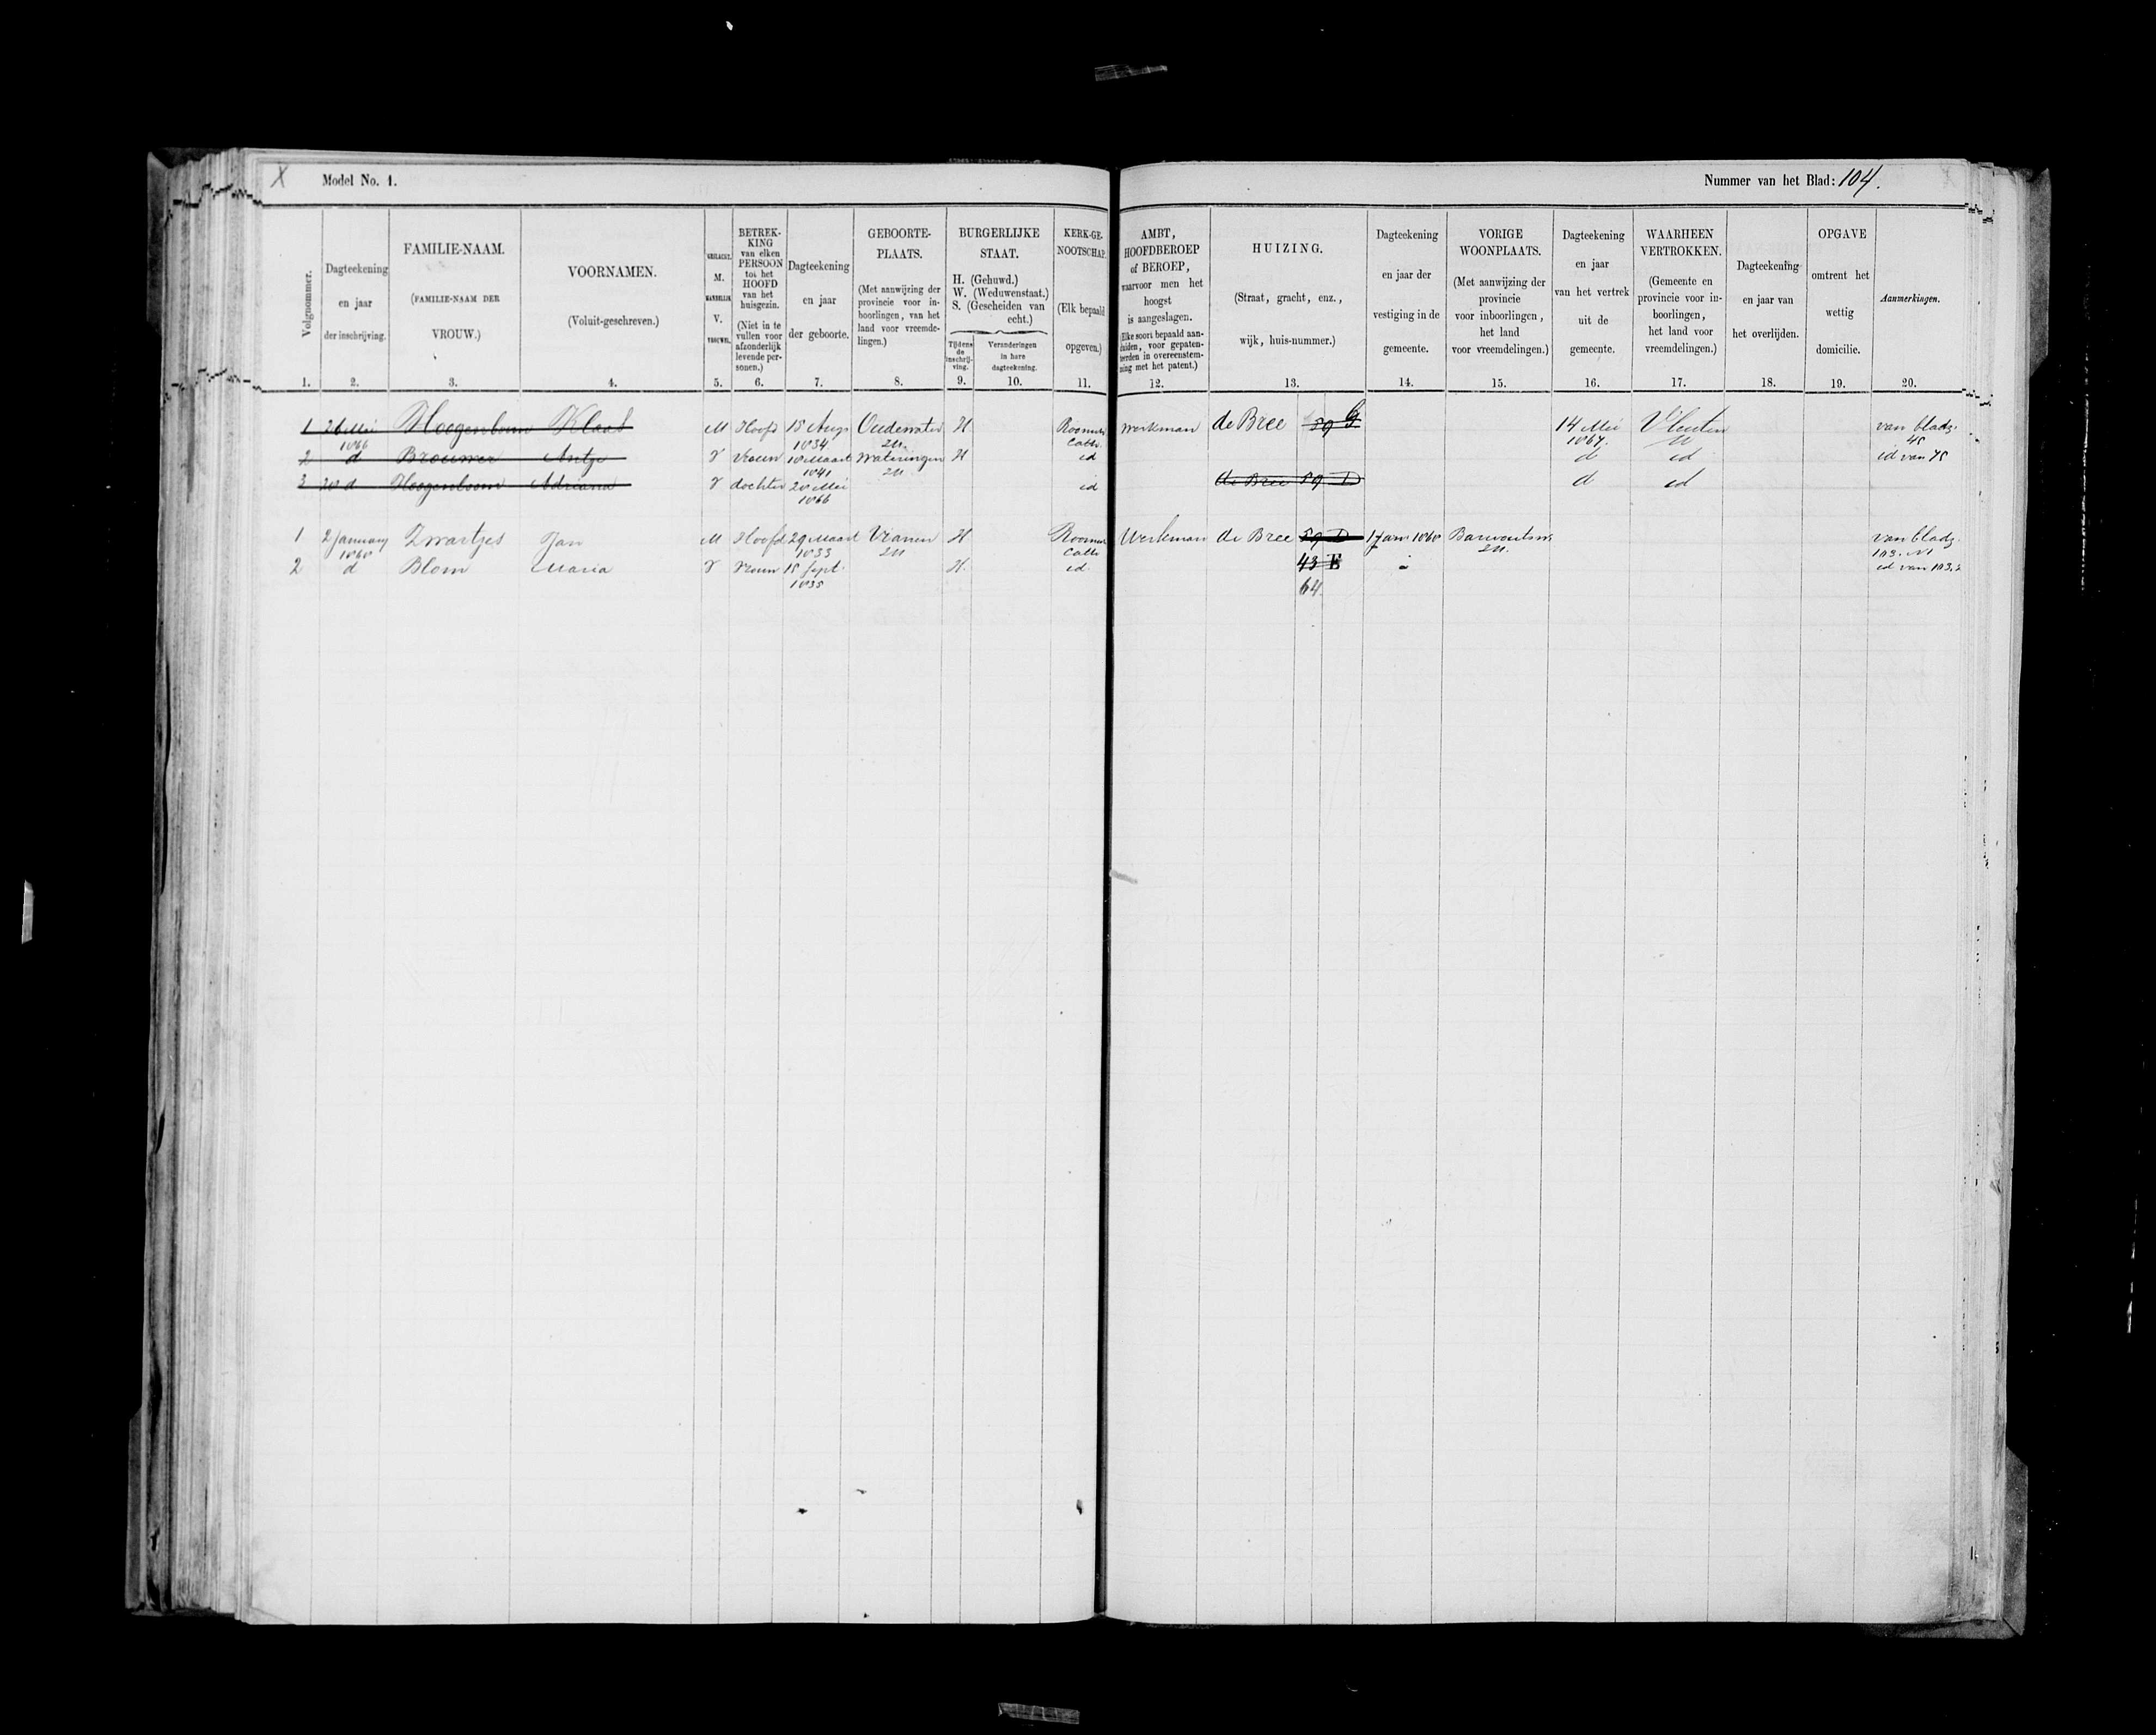 X Model No. 1. Nummer van het Blad: 104.
Volgnommer. 1.
Dagteekening
en jaar
der inschrijving.
2.
FAMILIE-NAAM.
(FAMILIE-NAAM DER
VROUW.)
3.
VOORNAMEN.
(Voluit-geschreven.)
4.
GESLACHT.
M.
MANNELIJK
V.
VROUWEL.
5.
BETREK-
KING
van elken
PERSOON
tot het
HOOFD
van het
huisgezin.
(Niet in te
vullen voor
afzonderlijk
levende per-
sonen.)
6.
Dagteekening
en jaar
der geboorte.
7.
GEBOORTE-
PLAATS.
(Met aanwijzing der
provincie voor in-
boorlingen, van het
land voor vreemde-
lingen.)
8.
BURGERLIJKE
STAAT.
H. (Gehuwd.)
W. (Weduwenstaat.)
S. (Gescheiden van
echt.)
Tijdens
de
inschrij-
ving.
9.
Veranderingen
in hare
dagteekening.
10.
KERK-GE-
NOOTSCHAP.
(Elk bepaald
opgeven.)
11.
AMBT,
HOOFDBEROEP
of BEROEP,
waarvoor men het
hoogst
is aangeslagen.
(Elke soort bepaald aan-
duiden, voor gepaten-
teerden in overeenstem-
ming met het patent.)
12.
HUIZING.
(Straat, gracht, enz.,
wijk, huis-nummer.)
13.
Dagteekening
en jaar der
vestiging in de
gemeente.
14.
VORIGE
WOONPLAATS.
(Met aanwijzing der
provincie
voor inboorlingen,
het land
voor vreemdelingen.)
15.
Dagteekening
en jaar
van het vertrek
uit de
gemeente.
16.
WAARHEEN
VERTROKKEN.
(Gemeente en
provincie voor in-
boorlingen,
het land voor
vreemdelingen.)
17.
Dagteekening
en jaar van
het overlijden.
18.
OPGAVE
omtrent het
wettig
domicilie.
19.
Aanmerkingen.
20.
1 26 Mei Hoogenboom Klaas M Hoofd 18 Augs Oudewater H Roomsch werkman de Bree 59 G 14 Mei Vleuten van bladz.
1866 1834 ZH. Cath. 1867. U 45
2 d Brouwer Antje V Vrouw 18 Maart Wateringen H id d id id van 45
1841 ZH
3 20 d Hoogenboom Adriana V dochter 20 Mei id de Bree 59 D d id
1866
1 2 January Zwartjes Jan M Hoofd 29 Maart Vianen H Roomsch Werkman de Bree 59 D 1 Jan 1868 van bladz.
1868 1833 ZH Cath ZH. 103. N1
2 d Blom Maria V Vrouw 18 Sept. H. id. 43 E id van 103.2
1835 64